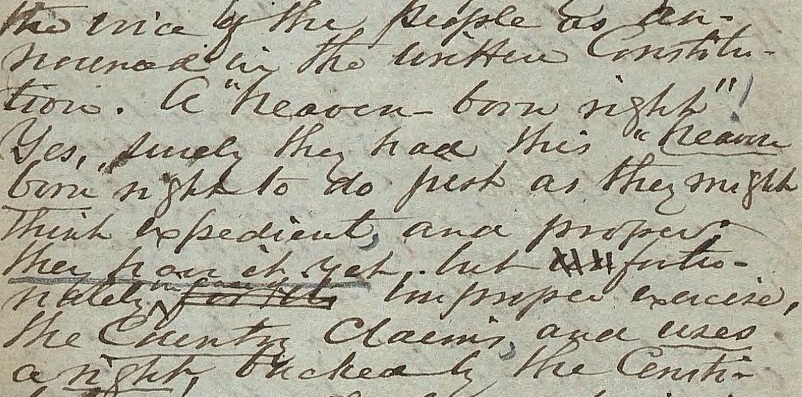 the voice of the people as an-
nounced in the written Constitu-
tion. A "heaven-born right"!
Yes, surely they had this "heaven
born right to do just as they might
think expedient, and proper
they have it yet, but fortu-
nately, in case of improper exercise,
the Country claims, and uses
a right, backed by the Consti-